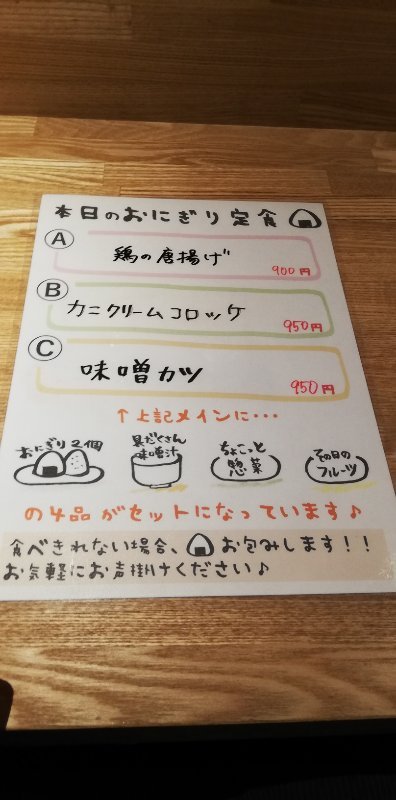 本日のおにぎり定食
A
鶏の唐揚げ
900円
B
カニクリームコロッケ
950円
C
味噌カツ
950円
↑上記メインに・・・
おにぎり2個
具だくさん
味噌汁
ちょこっと
惣菜
その日の
フルーツ
の4品がセットになっています♪
食べきれない場合、お包みします！！
お気軽にお声掛けください♪